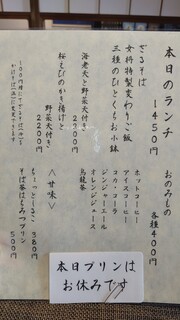 本日のランチ
1450円
ざるそば
女将特製変わりご飯
三種のひとくちお小鉢
海老天と野菜天付き
2200円
桜えびのかき揚げと
野菜天付き
2200円
おのみもの
各種400円
ホットコーヒー
アイスコーヒー
コカコーラ
ジンジャーエール
オレンジジュース
烏龍茶
＜甘味＞
ちょーっとしるこ
380円
そば茶はちみつプリン
500円
本日プリンは
お休みです